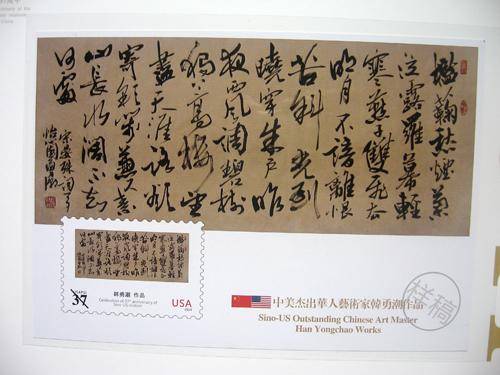 檻菊愁煙蘭
泣露羅幕輕
寒燕子雙飛去
明月不諳離恨
苦斜光到
曉穿朱戶昨
夜西風凋碧樹
獨上高樓望
盡天涯路欲
寄彩箋兼尺素
山長水闊知
何處
宋晏殊詞
37
USA
韩勇潮 作品
中美杰出華人藝術家韓勇潮作品
Sino-US Outstanding Chinese Art Master
Han Yongchao Works
样稿